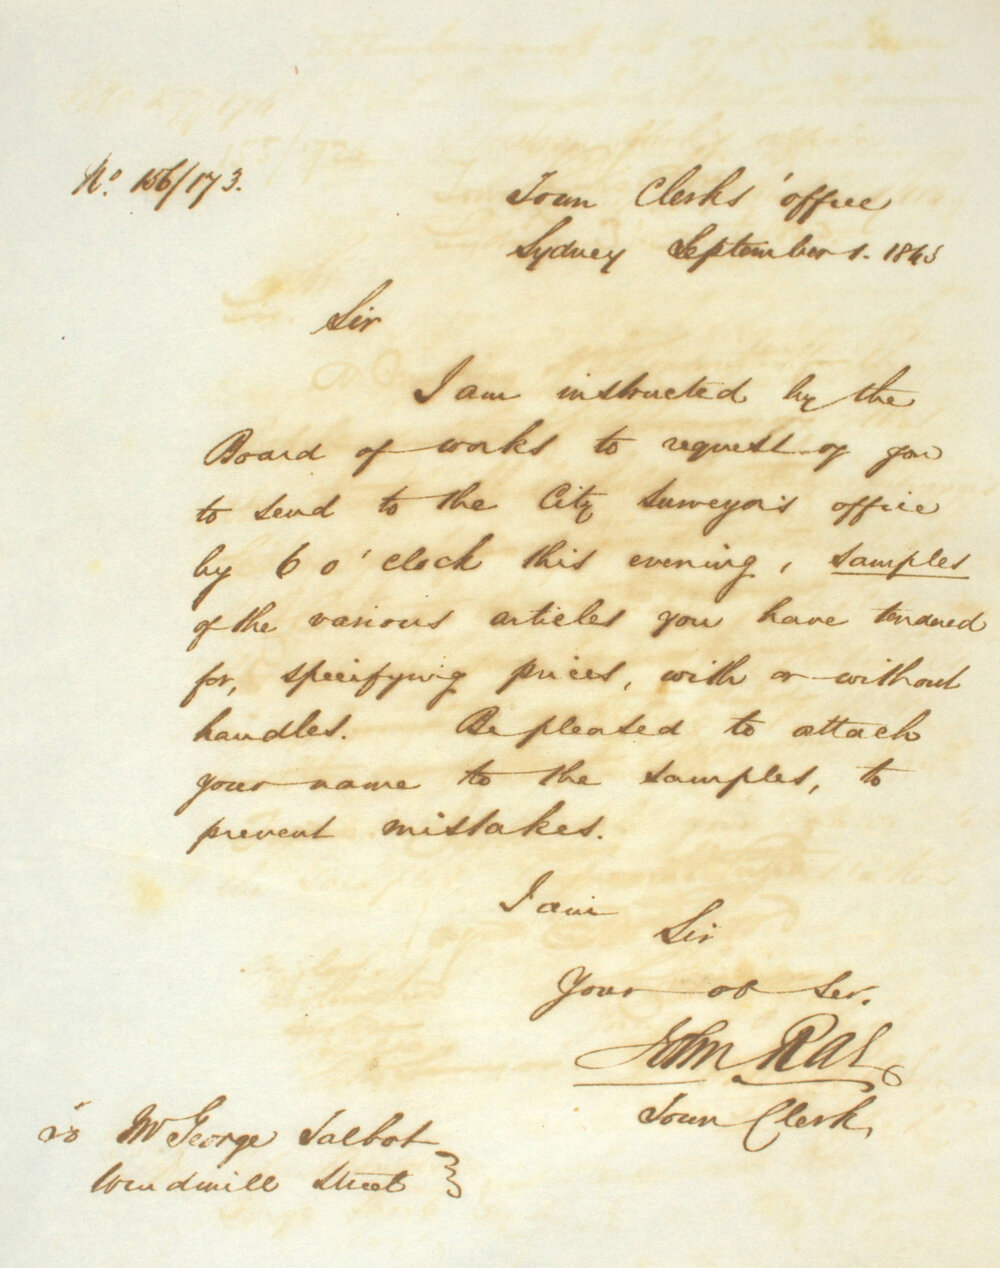 No. 156/173.
Town Clerks' office
Sydney September 1. 1843
Sir
I am instructed by the
Board of works to request of you
to send to the City Surveyor's office
by 6 o'clock this evening, samples
of the various articles you have tendered
for, specifying prices, with or without
handles. Be pleased to attach
your name to the samples, to
prevent mistakes.
I am
Sir
Your ob Ser.
John Rae
Town Clerk,
To Mr George Talbot
Windmill Street